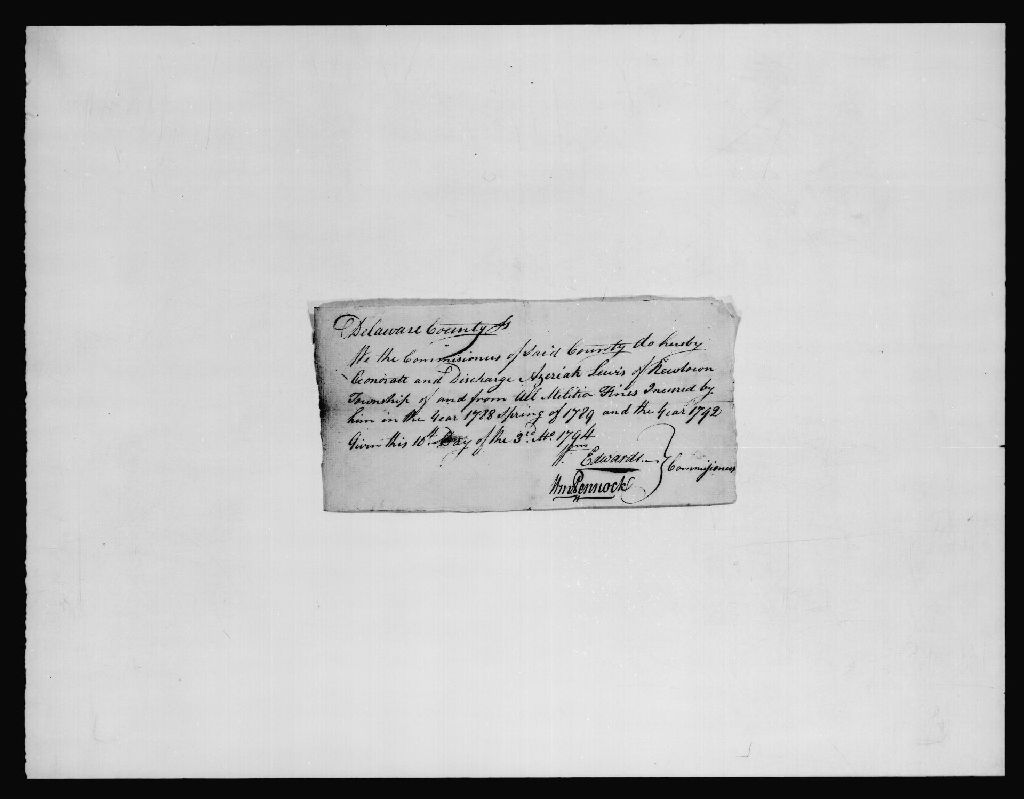 Delaware County ss
We the Commisioners of Said County do hereby
Exonorate and Discharge Azeriah Lewis of Newtown
Township of and from All Militia Fines Incured by
him in the Year 1788 Spring of 1789 and the Year 1792
Given this 10th Day of the 3rd Mo 1794
Edwards
Commisioners
Wm Pennock